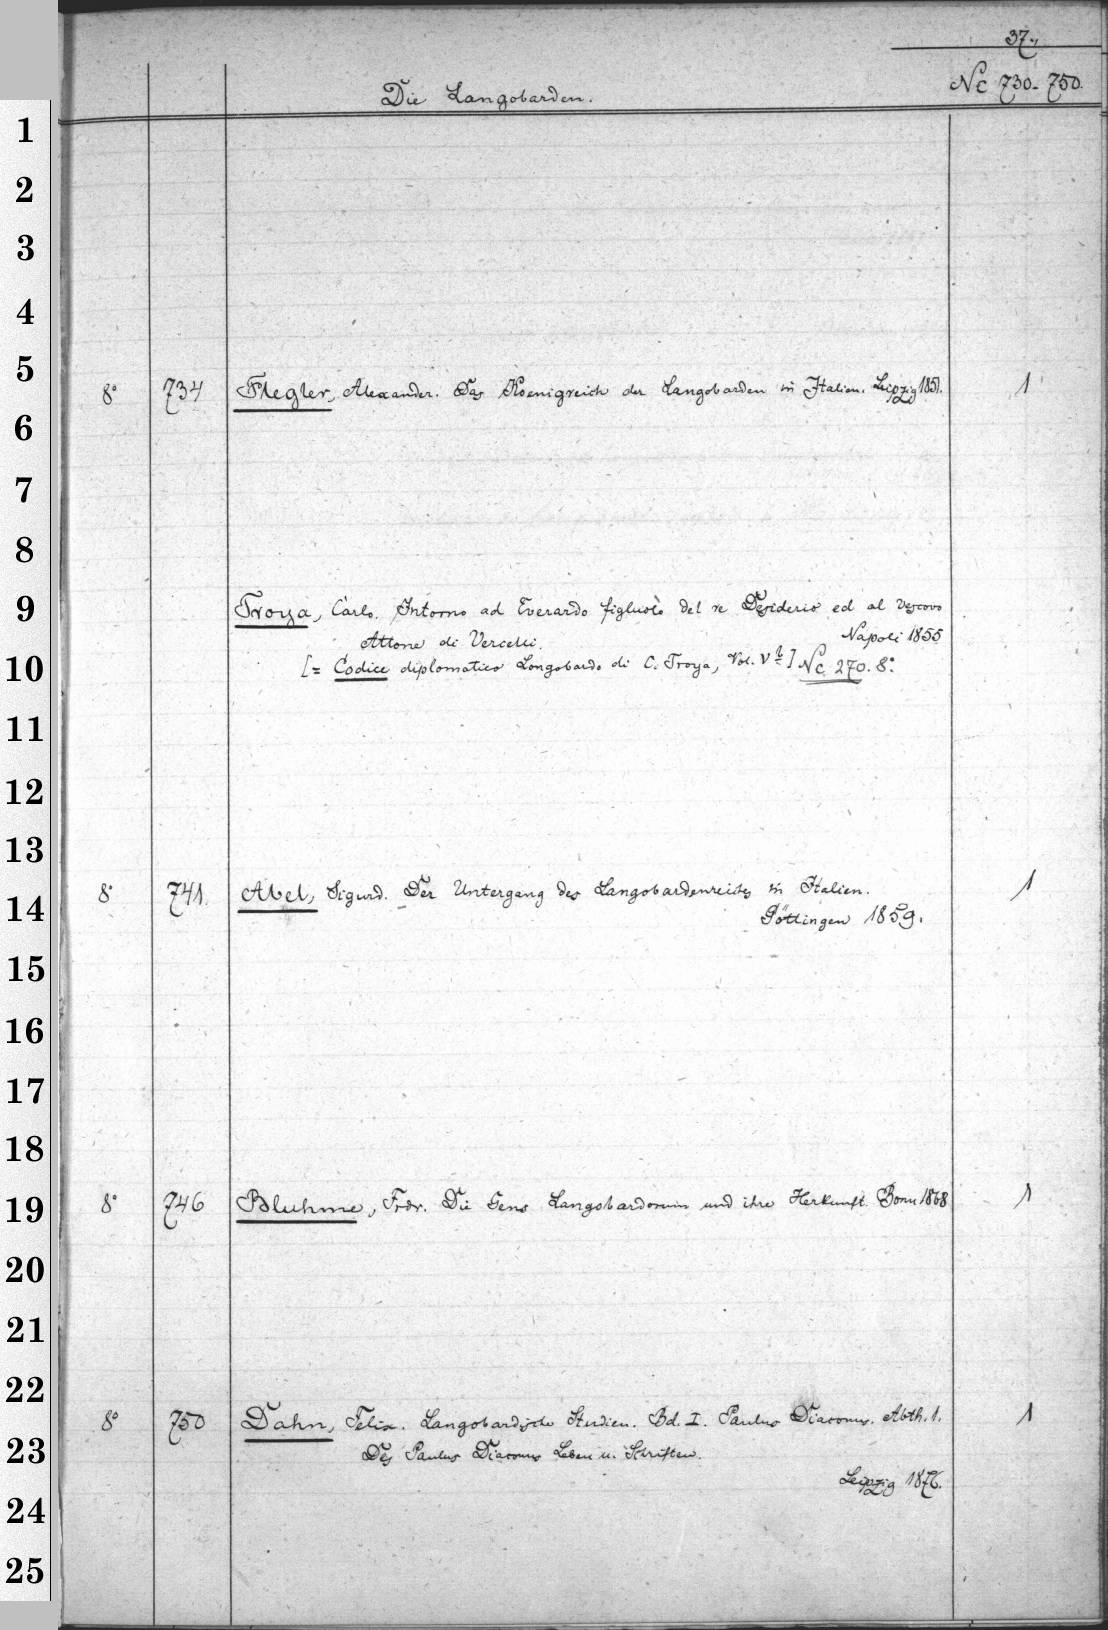 37.
Die Langobarden.
Nc 730-750.
1
2
3
4
5
8° 734 Flegler, Alexander. Das Koenigreich der Langobarden in Italien. Leipzig 1851. 1
6
7
8
9
Troya, Carlo. Intorno ad Everardo figluolo del re Desiderio ed al vescovo
Attone di Vercelli. Napoli 1855
10
[= Codice diplomatico Longobardo di C. Troya, Vol. V b] Nc 270. 8°
11
12
13
8° 741. Abel, Sigurd. Der Untergang des Langobardenreiches in Italien. 1
14
Göttingen 1859.
15
16
17
18
19
8° 746 Bluhme, Frdr. Die Gens Langobardorum und ihre Herkunft. Bonn 1868 1
20
21
22
8° 750 Dahn, Felix. Langobardische Studien. Bd. I. Paulus Diaconus. Abth. 1. 1
23
Des Paulus Diaconus Leben u. Schriften.
Leipzig 1876.
24
25